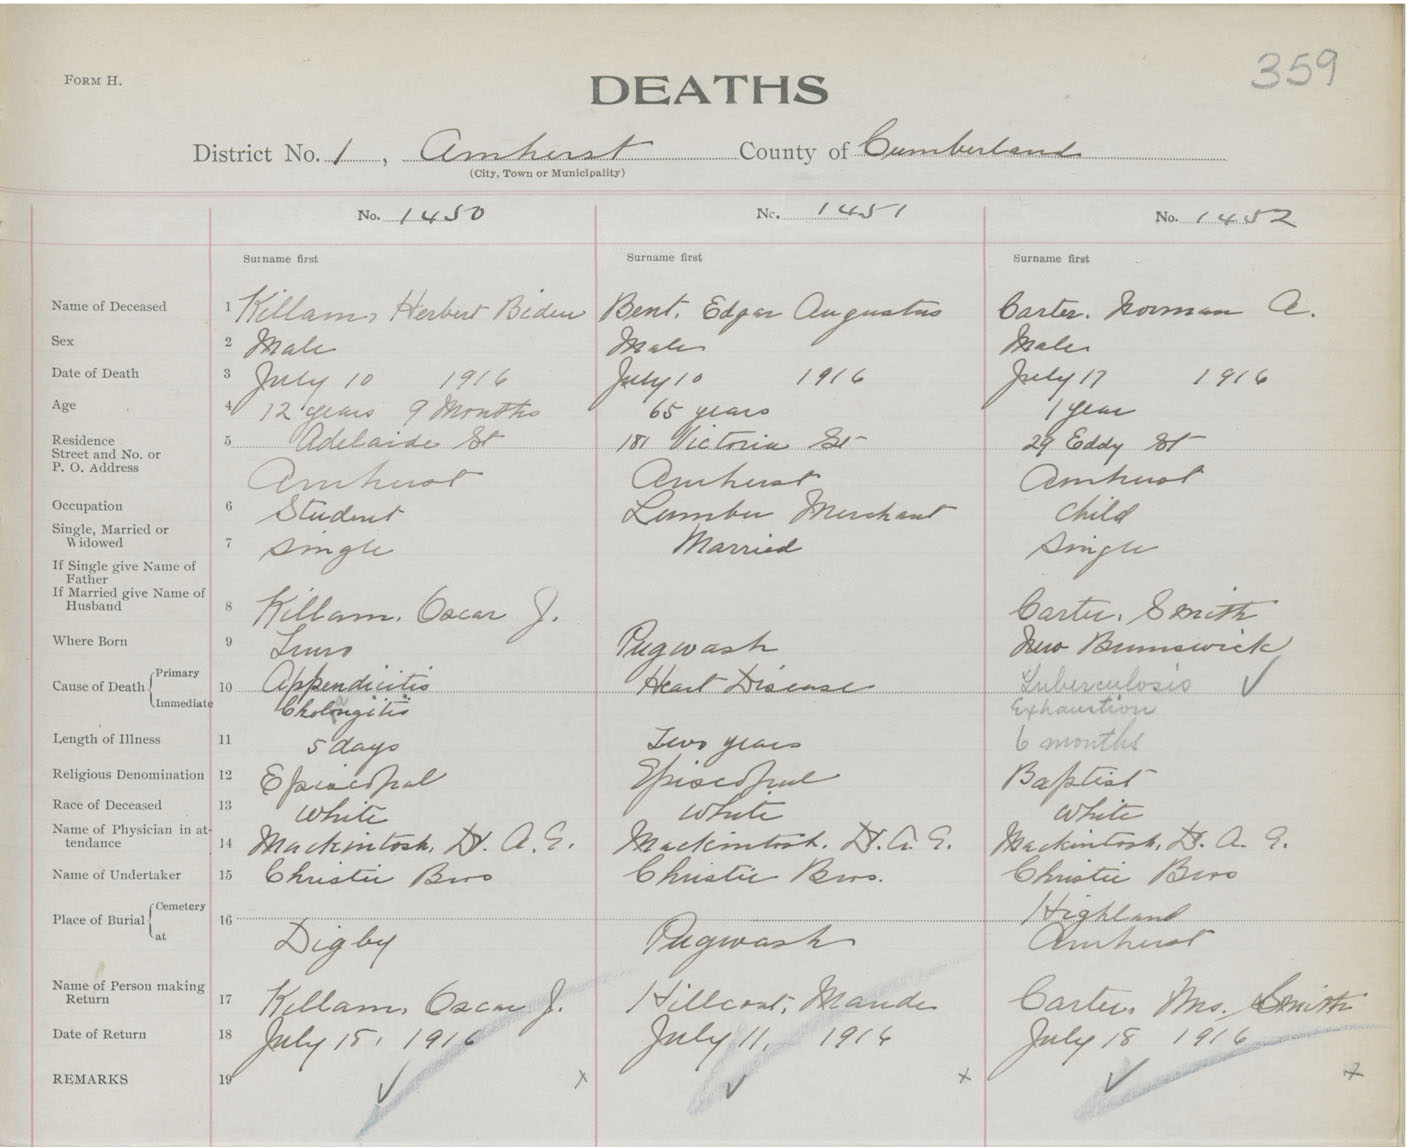 FORM H.
359
DEATHS
District No. 1, Amherst County of Cumberland
(City, Town or Municipality)
No. 1450 No. 1451 No. 1452
Surname first Surname first Surname first
Name of Deceased 1 Killam, Herbert Biden Bent, Edgar Augustus Carter, Norman A.
Sex 2 Male Male Male
Date of Death 3 July 10 1916 July 10 1916 July 17 1916
Age 4 12 years 9 Months 65 years 1 year
Residence 5 Adelaide St 181 Victoria St 29 Eddy St
Street and No. or
P. O. Address Amherst Amherst Amherst
Occupation 6 Student Lumber Merchant Child
Single, Married or
Widowed 7 Single Married Single
If Single give Name of
Father
If Married give Name of
Husband 8 Killam, Oscar J. Carter, Smith
Where Born 9 Truro Pugwash New Brunswick
Cause of Death Primary 10 Appendicitis Heart Disease Tuberculosis
Immediate Cholangitis Exhaustion
Length of Illness 11 5 days Two years 6 months
Religious Denomination 12 Episcopal Episcopal Baptist
Race of Deceased 13 White White White
Name of Physician in at-
tendance 14 Mackintosh, Dr. A. E. Mackintosh, Dr. A. E. Mackintosh, Dr. A. E.
Name of Undertaker 15 Christie Bros Christie Bros. Christie Bros
Place of Burial Cemetery 16 Highland
at Digby Pugwash Amherst
Name of Person making
Return 17 Killam, Oscar J. Hillcoat, Maude Carter, Mrs. Smith
Date of Return 18 July 15, 1916 July 11, 1916 July 18 1916
REMARKS 19 ✓ x ✓ x ✓ x